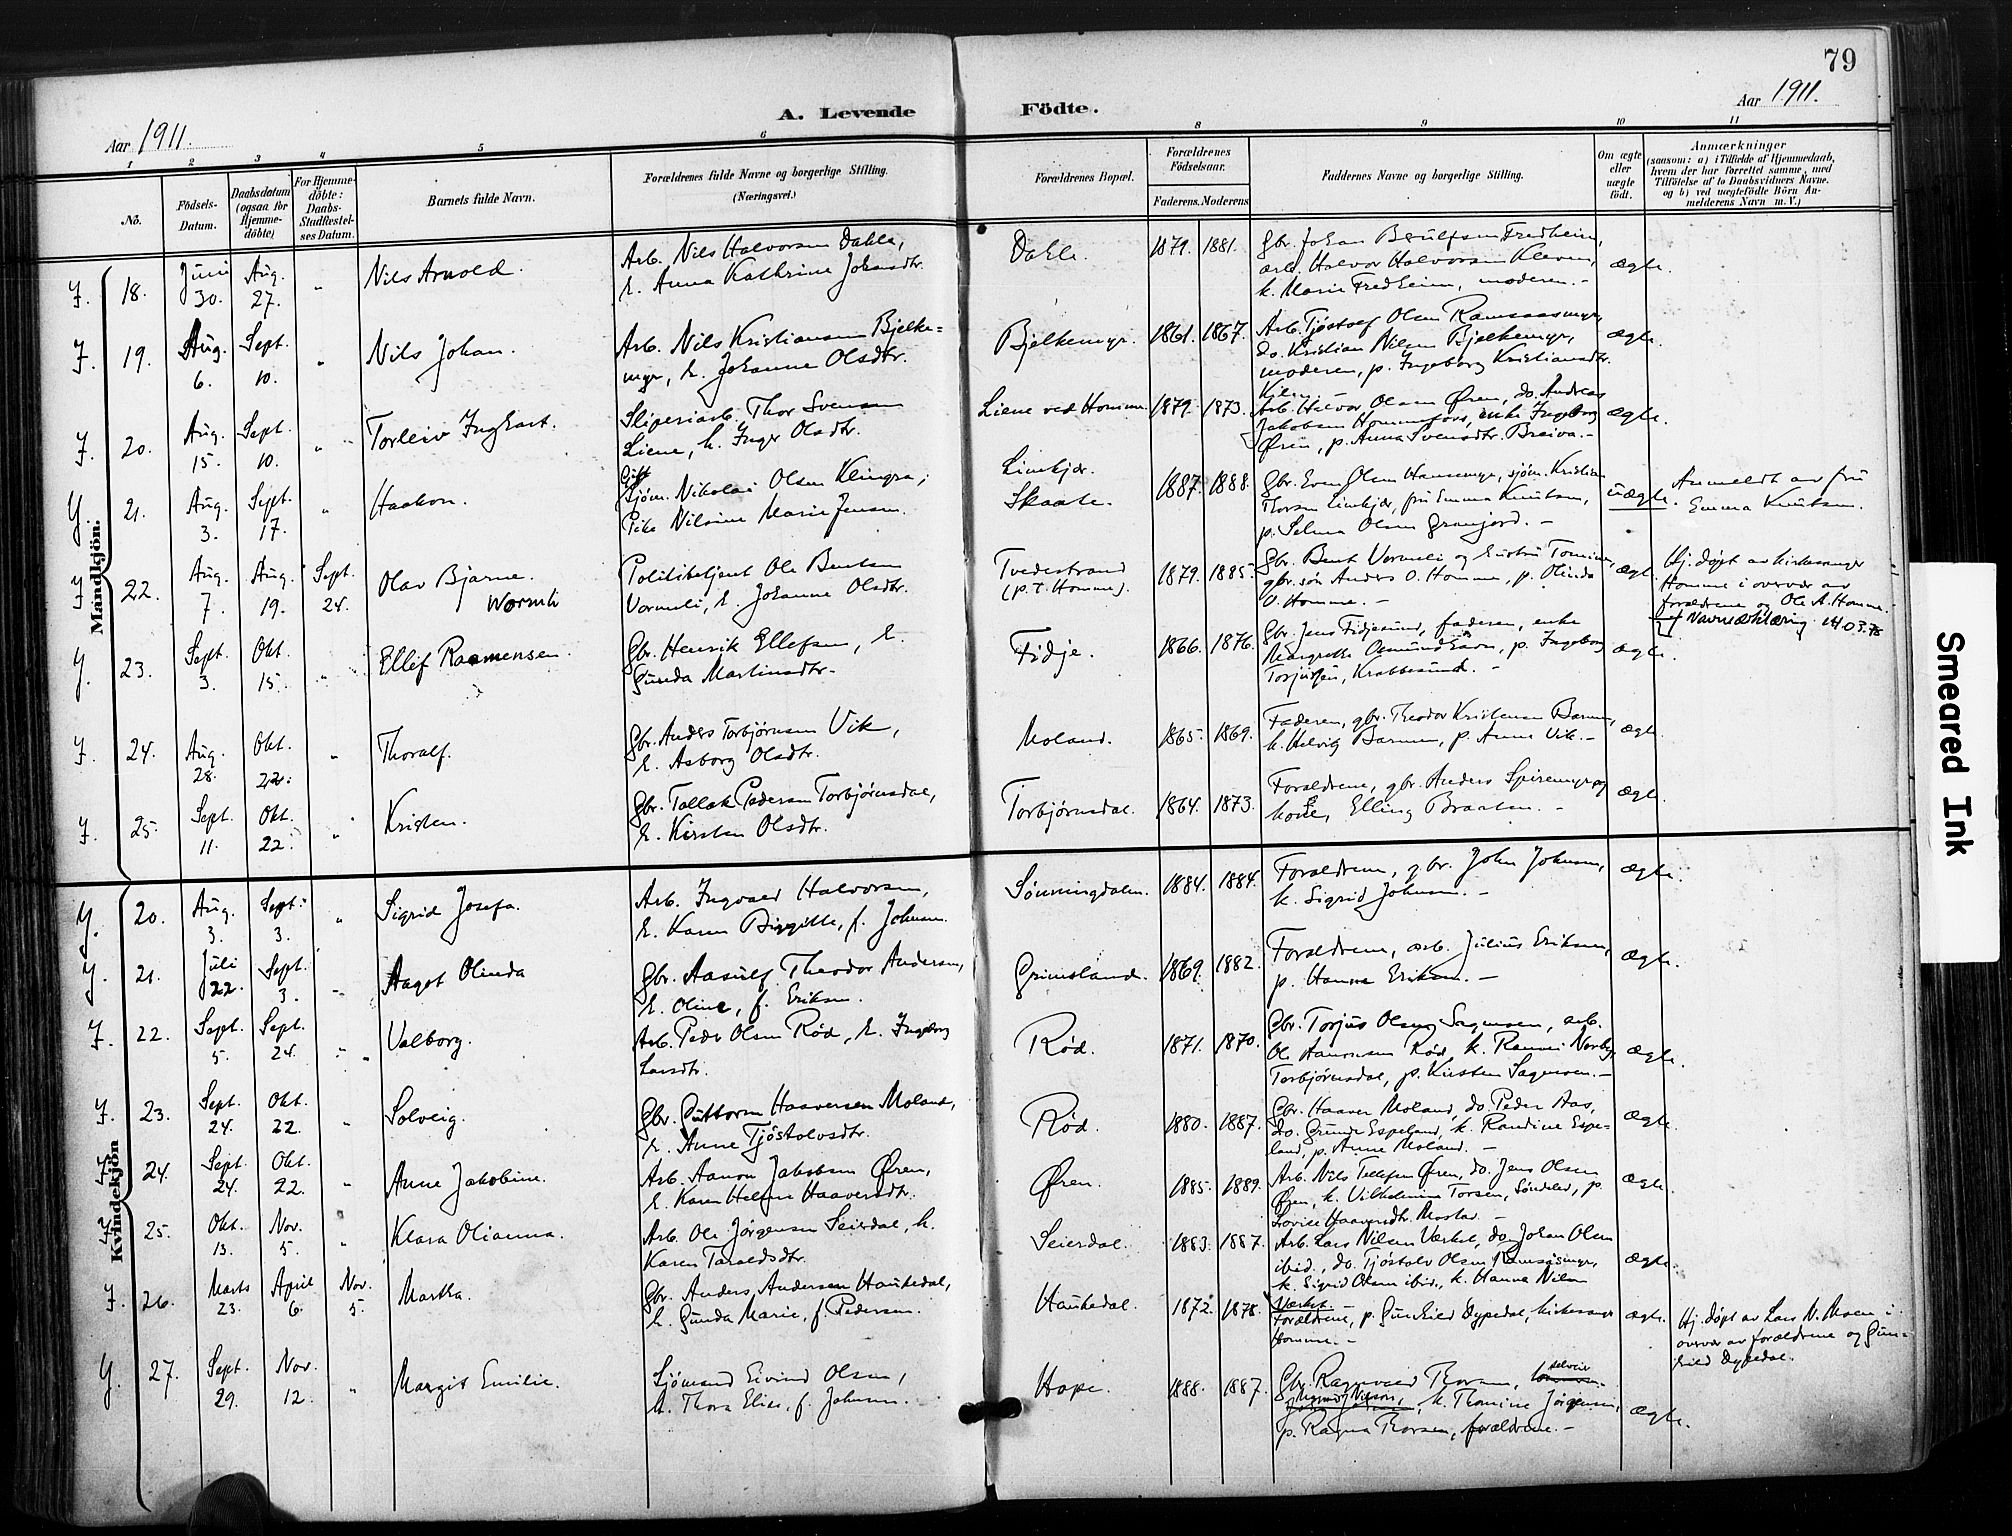 79
Aar 1911.
A. Levende Födte.
Aar 1911.
1 2 3 4 5 6 8 9 10 11
No.
Födsels-Datum.
Daabsdatum (ogsaa for Hjemme-döbte)
For Hjemme-döbte: Daabs-Stadfestel-ses Datum.
Barnets fulde Navn.
Forældrenes fulde Navne og borgerlige Stilling.
(Næringsvei.)
Forældrenes Bopæl.
Forældrenes Födselsaar.
Faderens. Moderens
Faddernes Navne og borgerlige Stilling.
Om ægte eller uægte födt.
Anmærkninger
(saasom: a) i Tilfælde af Hjemmedaab,
hvem der har forrettet samme, med
Tilföielse af to Daabsvidners Navne.
og b) ved uægtefödte Börn An-
melderens Navn m. V.)
Mandkjön.
18. Juni 30. Aug. 27. " Nils Arnold.
Arb. Nils Halvorsen Dahle,
h. Anna Kathrine Johnsdtr.
Dahle. 1879. 1881.
Gbr. Johan Fredheim,
arb. Halvor Halvorsen Kleven,
k. Marie Fredheim, moderen. –
ægte.
19. Aug. 6. Sept. 10. " Nils Johan.
Arb. Nils Kristiansen Bjelke=
myr, h. Johanne Olsdtr.
Bjelkemyr. 1861. 1867.
Arb. Tjöstolf Olsen Ramsaasmyr,
do. Kristian Nilsen Bjelkemyr,
moderen, p. Ingeborg Kristiansdtr.
ægte.
20. Aug. 15. Sept. 10. " Torleiv
Sliperiarb. Thor Svensen
Liene, h. Inger Olsdtr.
Liene ved Homme. 1879. 1873.
Arb. Halvor Olsen Øren, do. Andreas
Jakobsen Hommefoss, enke Ingeborg
Øren, p. Anna Svensdtr. Breiva. –
ægte.
21. Aug. 3. Sept. 17. " Haakon.
Gift
Sjöm. Nikolai Olsen
Pike Nilsine Marie Jensen.
Linkjær.
Skaate. 1887. 1888.
Gbr. Even Olsen Hansemyr, sjöm. Kristian
Thorsen Limkjær, fru Emma Knutsen,
p. Selma Olsen Granfjord. –
uægte.
Anmeldt av fru
Emma Knutsen.
22. Aug. 7. Aug. 19. Sept. 24. Olav Bjarne.
Wormli
Politibetjent Ole Bentsen
Vormeli, h. Johanne Olsdtr.
Tvedestrand
(p.t. Homme). 1879. 1885.
Gbr. Bent Vormeli og hustru
gbr.søn Anders O. Homme, p. Olinda
O. Homme. –
ægte.
Hj. døpt av kirkesanger
Homme i overvær av
forældrene og Ole A. Homme.
Navneerklæring
23. Sept. 3. Okt. 15. " Ellif Rasmensen.
Gbr. Henrik Ellefsen, h.
Gunda Martinsdtr.
Fidje. 1866. 1876.
Gbr. Jens Fidjesund, faderen, enke
Margrethe p. Ingeborg
Torjusen, Krabbesund. –
ægte.
24. Aug. 28. Okt. 22. " Thoralf.
Gbr. Anders Torbjørnsen Vik,
h. Asborg Olsdtr.
Moland. 1865. 1869.
Faderen, gbr. Theodor Kristensen Barmen,
k. Helvig Barmen, p. Anne Vik. –
ægte.
25. Sept. 11. Okt. 22. " Kristen.
Gbr. Tallak Pedersen Torbjørnsdal,
h. Kirsten Olsdtr.
Torbjørnsdal. 1864. 1873.
Forældrene, gbr. Anders Spiremyr og
kone, Elling Braaten. –
ægte.
Kvindekjön
20. Aug. 3. Sept. 3. " Sigrid Josefa.
Arb. Ingvald Halvorsen,
h. Karen Birgitte, f. Johnsen.
Sönningdalen. 1884. 1884.
Forældrene, gbr. John Johnsen,
k. Sigrid Johnsen. –
ægte.
21. Juli 22. Sept. 3. " Aagot Olinda
Gbr. Aasulf Theodor Andersen,
h. Oline, f. Eriksen.
Grimsland. 1869. 1882.
Forældrene, arb. Julius Eriksen,
p. Hanna Eriksen. –
ægte.
22. Sept. 5. Sept. 24. " Valborg.
Arb. Peder Olsen Rød, h. Ingeborg
Larsdtr.
Rød. 1871. 1870.
Gbr. Torjus Olsen Sagmoen, arb.
Ole Rød, k.
Torbjørnsdal, p. Kirsten Sagmoen. –
ægte.
23. Sept. 24. Okt. 22. " Solveig.
Gbr. Guttorm Haaversen Moland,
h. Anne Tjöstolvsdtr.
Rød. 1880. 1887.
Gbr. Haaver Moland, do. Peder Aas,
do. Gunde Espeland, k. Randine Espe=
land, p. Anne Moland. –
ægte.
24. Sept. 24. Okt. 22. " Anne Jakobine.
Arb. Aanon Jakobsen Øren,
h. Karen Helene Haaversdtr.
Øren. 1885. 1889.
Arb. Nils Tellefsen Øren, do. Jens Olsen
Øren, k. Vilhelmine Torsen, Søndeled, p.
Lovise Haaversdtr. Mostad. –
ægte.
25. Okt. 13. Nov. 5. " Klara Olianna.
Arb. Ole Jörgensen Seierdal, h.
Karen Taraldsdtr.
Seierdal. 1883. 1887.
Arb. Lars Nilsen Værket, do. Johan Olsen
ibid., do. Tjöstolv Olsen Ramsåsmyr,
k. Sigrid Olsen ibid., k. Hanna Nilsen
Værket. –
ægte.
26. Marts 23. April 6. Nov. 5. Martha.
Gbr. Anders Andersen Haukedal,
h. Gunda Marie, f. Pedersen.
Haukedal. 1872. 1878.
Forældrene, p. Gunhild Dypedal, kirkesanger
Homme. –
ægte.
Hj. døpt av Lars N. Moen i
overvær av forældrene og Gun=
hild Dypedal.
27. Sept. 29. Nov. 12. " Margit Emilie.
Sjömand Eivind Olsen,
h. Thora Elise, f. Johnsen.
Hope. 1888. 1887.
Gbr. Ragnvald Thorsen,
k. Thomine Jörgensen,
p. Ragna Thorsen, forældrene. –
ægte.
Smeared Ink